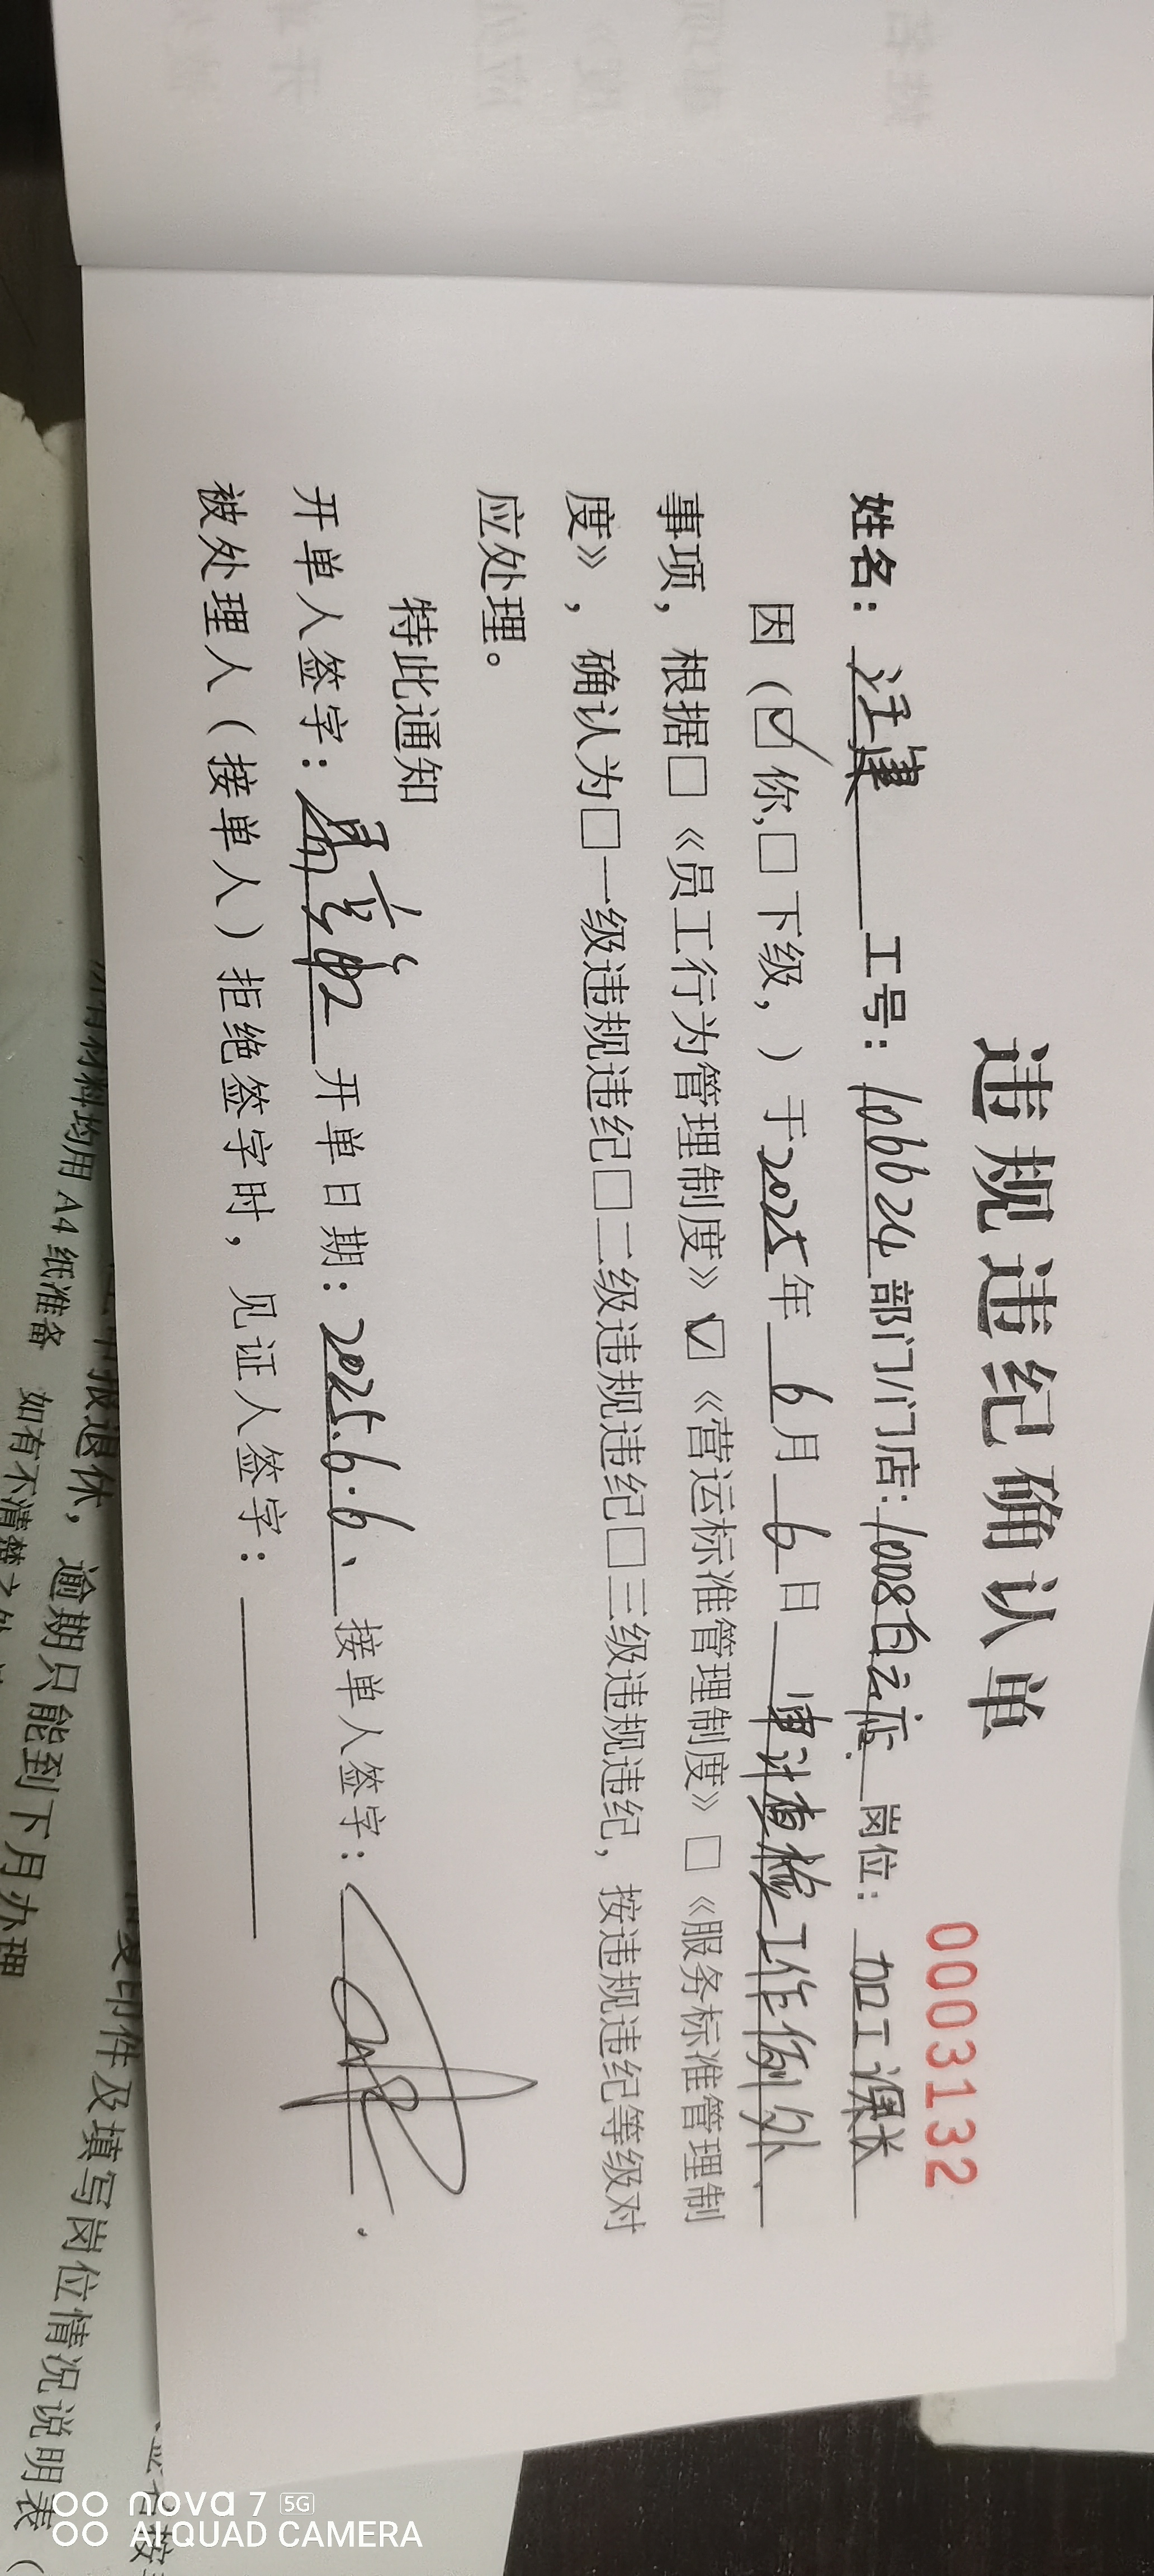 违规违纪确认单
0003132
姓名：汪建 工号：106624 部门/门店：1008白云店 岗位：加工课长
因（☑你，□下级，）于2025年6月6日 审计查检工作例外
事项，根据□《员工行为管理制度》☑《营运标准管理制度》□《服务标准管理制
度》，确认为□一级违规违纪□二级违规违纪□三级违规违纪，按违规违纪等级对
应处理。
特此通知
开单人签字： 开单日期：2025.6.6. 接单人签字：
被处理人（接单人）拒绝签字时，见证人签字：
材料均用 A4 纸准备 如有不清楚之处
报退休，逾期只能到下月办理
复印件及填写岗位情况说明表（
nova 7 5G
AI QUAD CAMERA